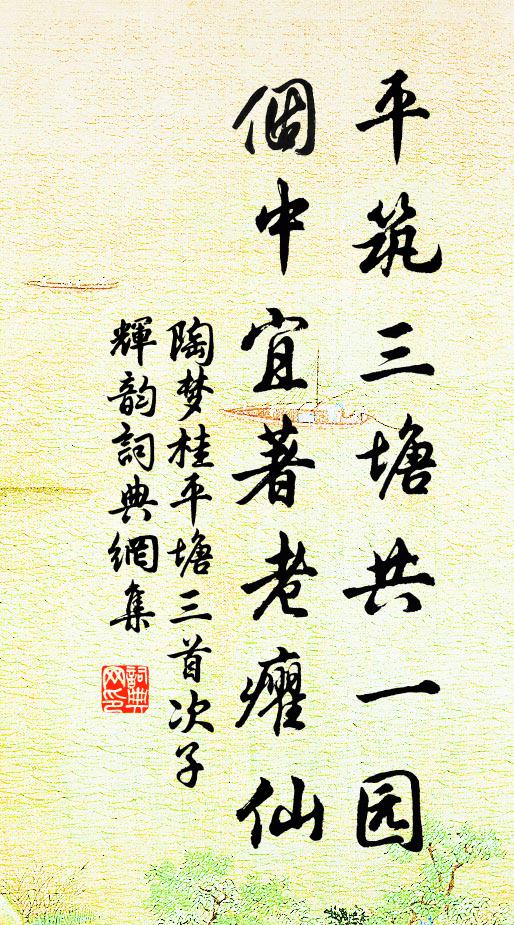 平筑三塘共一园
個中宜著老癯仙
陶梦桂平塘三首次子
輝韵詞典網集
詞典网印